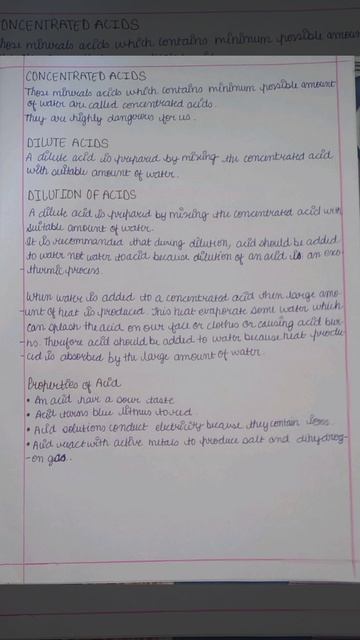 ONCENTRATED ACIDS
hose minerals acids which contains minimum possible amoun
CONCENTRATED ACIDS
Those minerals acids which contains minimum possible amount
of water are called concentrated acids.
They are highly dangerous for us.
DILUTE ACIDS
A dilute acid is prepared by mixing the concentrated acid
with suitable amount of water.
DILUTION OF ACIDS
A dilute acid is prepared by mixing the concentrated acid with
suitable amount of water.
It is recommanded that during dilution, acid should be added
to water not water to acid because dilution of an acid is an exo-
-thermic process.
When water is added to a concentrated acid then large amo-
-unt of heat is produced. This heat evaporate some water which
can splash the acid on our face or clothes or causing acid bur-
-ns. Therefore acid should be added to water because heat produ-
-ced is absorbed by the large amount of water.
Properties of Acid
• An acid have a sour taste
• Acid turns blue litmus to red.
• Acid solutions conduct electricity because they contain ions.
• Acid react with active metals to produce salt and dihydrog-
-en gas.